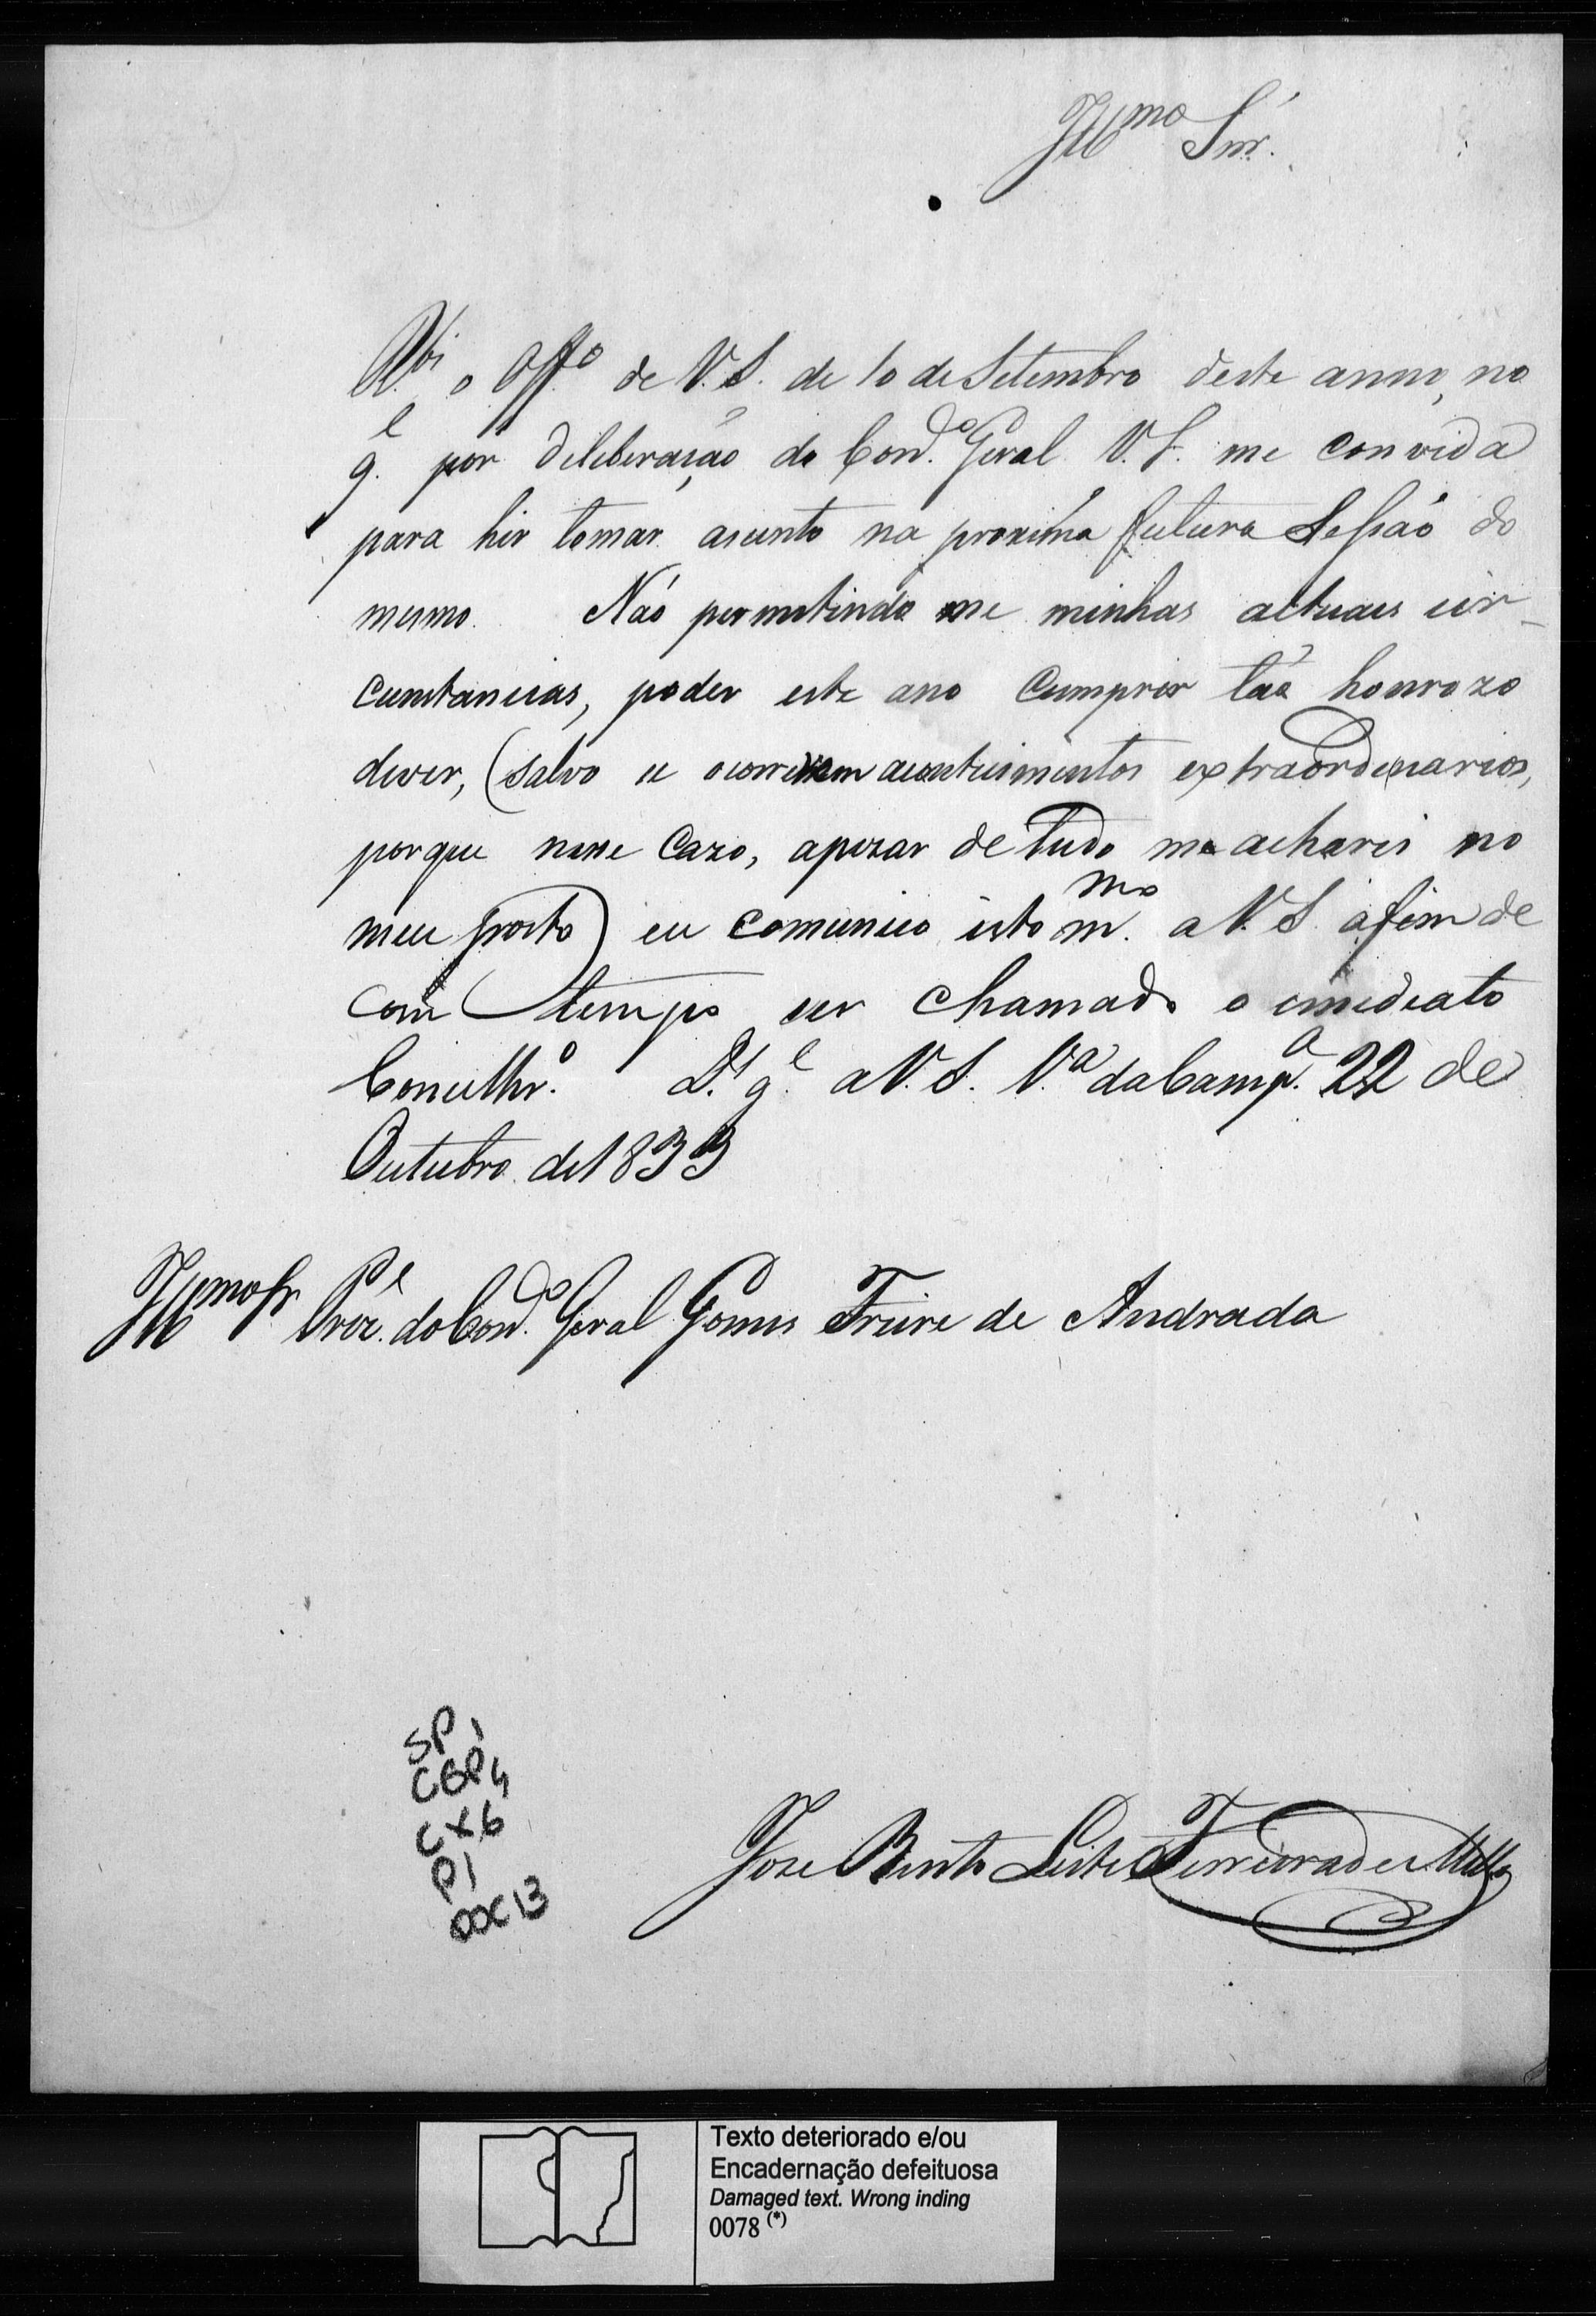 Illmo Snr.
R.bi o Off.o de V. S. de 10 de Setembro deste anno, no
q.l por deliberação do Con.o Geral V. S. me convida
para hir tomar acento na proxima futura Sessão do
mesmo. Não permetindo me minhas actuais cir-
cunstancias, poder este ano Cumprir tão honrozo
dever, (salvo se ocorrerem acontecimentos extraordenarios,
porque nesse Cazo, apezar de tudo me acharei no
meu posto) eu comunico isto m.mo a V. S. afim de
com tempo ser chamado o imediato
Conselhr.o D.s g.e a V. S. V.a da Camp.a 22 de
Outubro de 1833
Illmo Sr Prez.e do Con.o Geral Gomes Freire de Andrada
SP 1
CGP4
CX6
P1
DOC13
Joze Bento Leite Ferreira de Mello
Texto deteriorado e/ou
Encadernação defeituosa
Damaged text. Wrong inding
0078 (*)